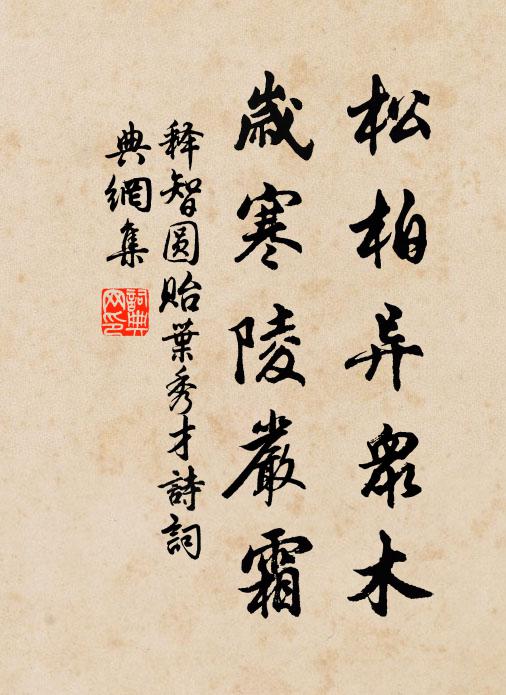 松柏异眾木
歲寒陵嚴霜
释智圆贻葉秀才詩詞
典網集
詞典网印